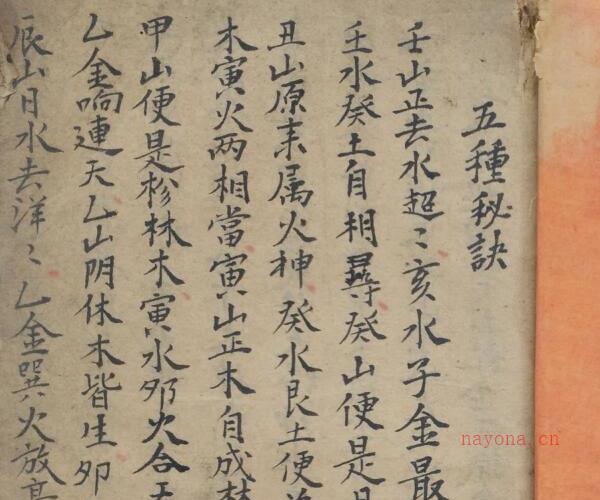 五種秘訣
壬山正去水超〻亥水子金最
壬水癸土自相尋癸山便是
丑山原来属火神癸水艮土便
木寅火两相當寅山正木自成林
甲山便是杉林木寅水夘火合
乙金响連天乙山阴休木皆生夘
辰山日水去洋〻乙金巽火放高
nayona.cn